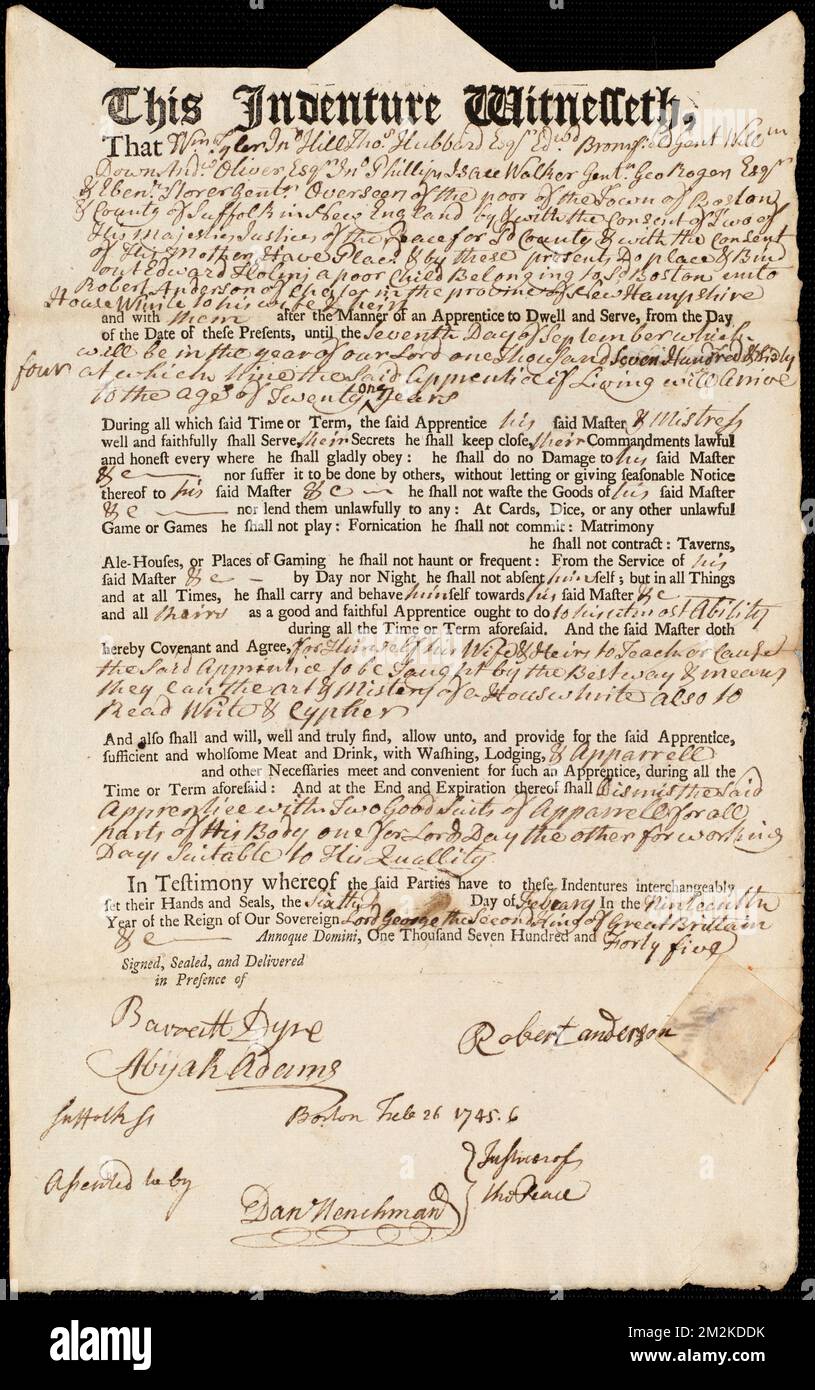 This Indenture Witnesseth,
That Wm Tyler Jno Hill Thos Hubbard Esqrs Edwd Bromfield Gent Willm
Down Andw Oliver Esqr Jno Phillips Isaac Walker Gentn Geo Rogen Esqrs
& Ebenr Storer Gentn Overseers of the poor of the Town of Boston
& County of Suffolk in New England by & with the Consent of Two of
His majesties Justices of the Peace for Sd County & with the Consent
of His mother Have Placd & by these presents Do place & Bind
out Edward a poor Child Belonging to Sd Boston unto
Robert Anderson of Chester in the province of New Hampshire
House to his wife & heirs
and with them after the Manner of an Apprentice to Dwell and Serve, from the Day
of the Date of these Presents, until the Seventh Day of September which
will be in the year of our Lord one thousand Seven Hundred & Sixty
four at which time the said Apprentice if Living will Arrive
to the age of Twenty one Years
During all which said Time or Term, the said Apprentice his said Master & Mistress
well and faithfully shall Serve, their Secrets he shall keep close, their Commandments lawful
and honest every where he shall gladly obey: he shall do no Damage to his said Master
&c nor suffer it to be done by others, without letting or giving seasonable Notice
thereof to his said Master &c he shall not waste the Goods of his said Master
&c nor lend them unlawfully to any: At Cards, Dice, or any other unlawful
Game or Games he shall not play: Fornication he shall not commit: Matrimony
he shall not contract: Taverns,
Ale-Houses, or Places of Gaming he shall not haunt or frequent: From the Service of his
said Master &c by Day nor Night he shall not absent himself; but in all Things
and at all Times, he shall carry and behave himself towards his said Master &c
and all theirs as a good and faithful Apprentice ought to do to his utmost Ability
during all the Time or Term aforesaid. And the said Master doth
hereby Covenant and Agree, for Himself his Wife & Heirs to Teach or Cause
the Said Apprentice to be Taught by the Best way & means
they can the art & Mistery of a Housewhrite also to
Read Write & Cypher
And also shall and will, well and truly find, allow unto, and provide for the said Apprentice,
sufficient and wholsome Meat and Drink, with Washing, Lodging, & Apparrell
and other Necessaries meet and convenient for such an Apprentice, during all the
Time or Term aforesaid: And at the End and Expiration thereof shall Dismiss the said
Apprentice with Two Good Suits of Apparrell for all
parts of His Body one for Lords Day the other for working
Days Suitable to His Quallity
In Testimony whereof the said Parties have to these Indentures interchangeably
set their Hands and Seals, the Sixth Day of Febeary In the Ninteenth
Year of the Reign of Our Sovereign Lord George the Second King of Great Brittain
&c Annoque Domini, One Thousand Seven Hundred and Forty five
Signed, Sealed, and Delivered
in Presence of
Barratt Dyre
Abijah Adams
Robert anderson
Suffolk Ss
Boston Feb 26 1745.6
Assented to by
Danl Henchman
Justices of
the Peace
alamy
Image ID: 2M2KDDK
www.alamy.com